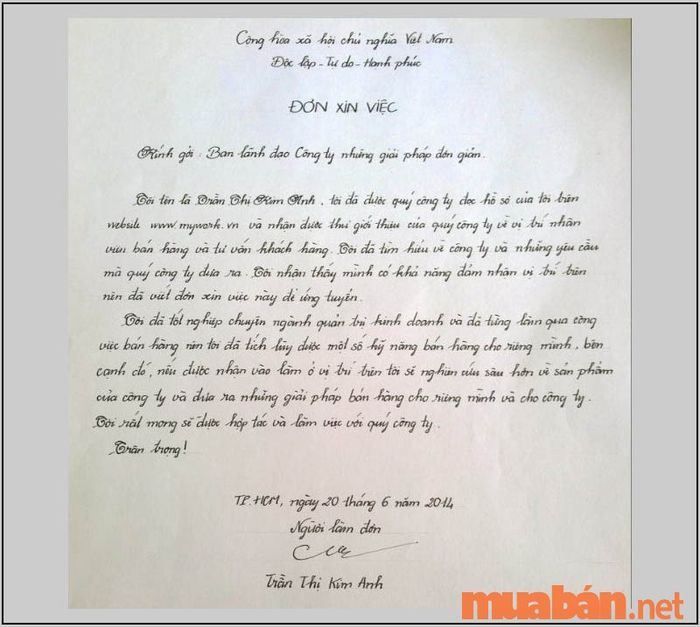 Cộng hòa xã hội chủ nghĩa Việt Nam
Độc lập - Tự do - Hạnh phúc
ĐƠN XIN VIỆC
Kính gởi : Ban lãnh đạo Công ty những giải pháp đơn giản.
Tôi tên là Trần Thị Kim Anh, tôi đã được quý công ty đọc hồ sơ của tôi trên
website www.mywork.vn và nhận được thư giới thiệu của quý công ty về vị trí nhân
viên bán hàng và tư vấn khách hàng. Tôi đã tìm hiểu về công ty và những yêu cầu
mà quý công ty đưa ra. Tôi nhận thấy mình có khả năng đảm nhận vị trí trên
nên đã viết đơn xin việc này để ứng tuyển.
Tôi đã tốt nghiệp chuyên ngành quản trị kinh doanh và đã từng làm qua công
việc bán hàng nên tôi đã tích lũy được một số kỹ năng bán hàng cho riêng mình, bên
cạnh đó, nếu được nhận vào làm ở vị trí trên tôi sẽ nghiên cứu sâu hơn về sản phẩm
của công ty và đưa ra những giải pháp bán hàng cho riêng mình và cho công ty.
Tôi rất mong sẽ được hợp tác và làm việc với quý công ty.
Trân trọng!
T.P.HCM, ngày 20 tháng 6 năm 2014
Người làm đơn
Trần Thị Kim Anh
muabán.net